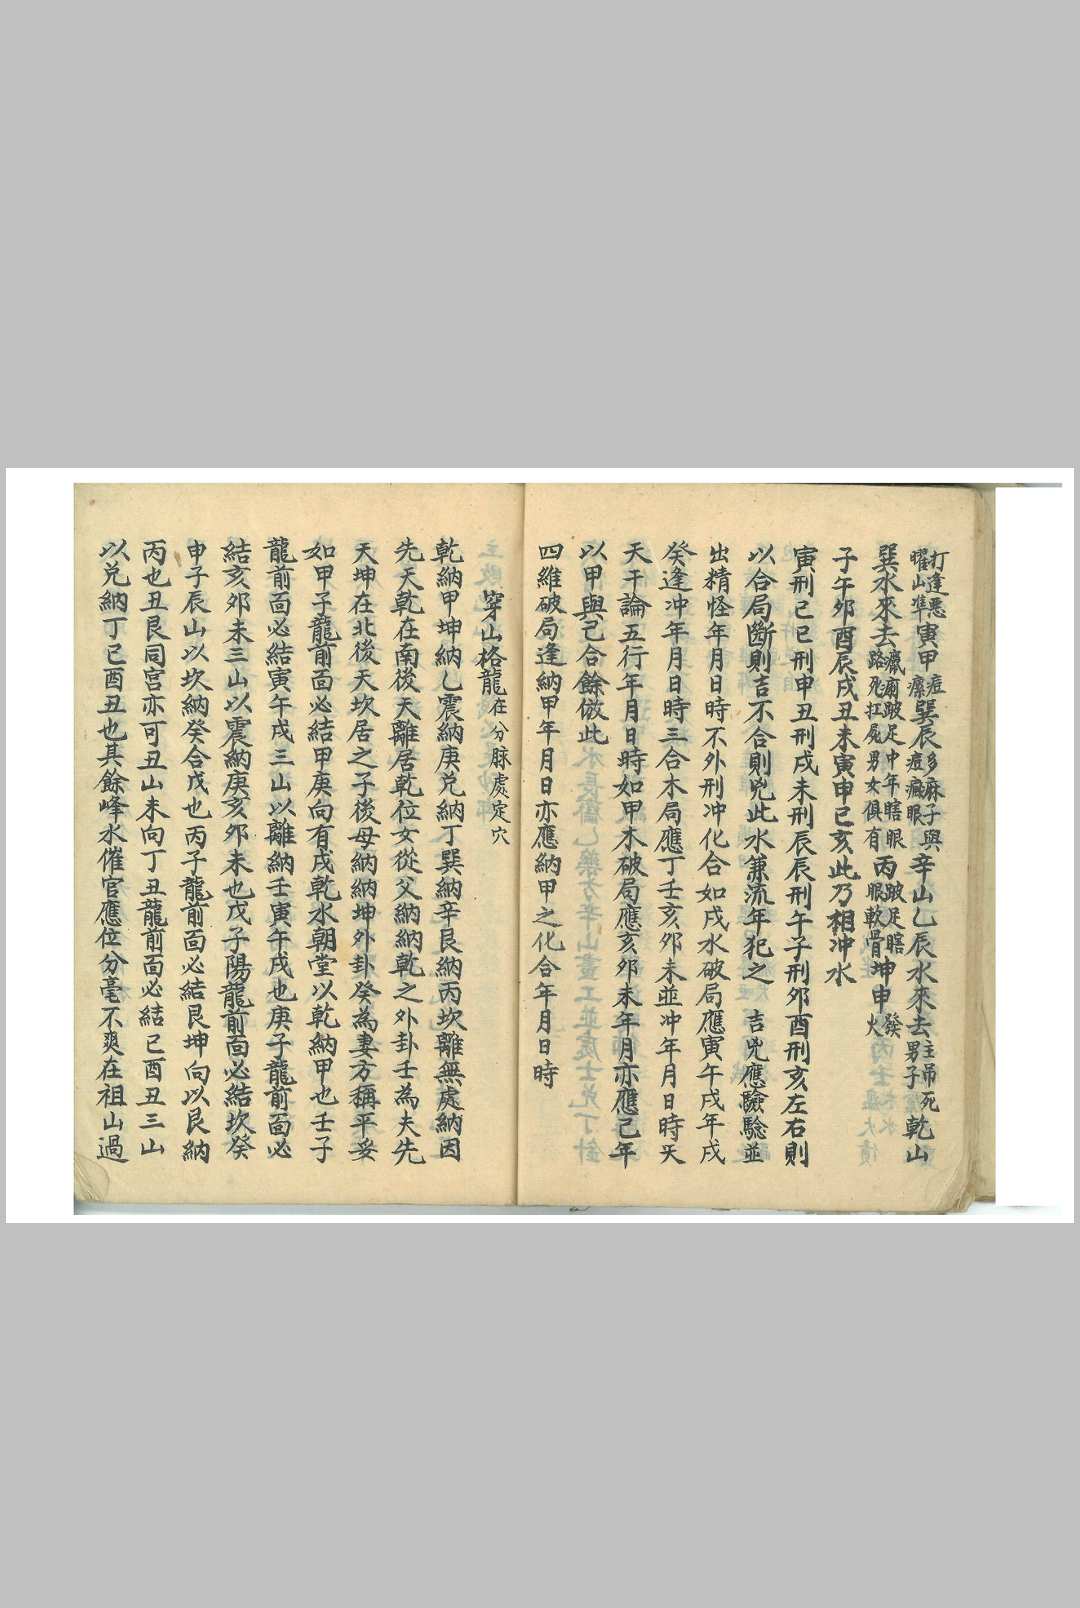 打逢惡曜山準寅甲痘瘰巽辰多麻子與痘癍眼辛山乙辰水來去主吊死男子乾山
巽水來去癲癇跛足中年瞎眼路死扛屍男女俱有丙跛足瞎眼軟骨坤申發火
子午夘酉辰戌丑未寅申巳亥此乃相冲水
寅刑巳巳刑申丑刑戌未刑辰辰刑午子刑夘酉刑亥左右則
以合局斷則吉不合則兇此水兼流年犯之 吉兇應驗驗並
出精怪年月日時不外刑冲化合如戌水破局應寅午戌年戌
癸逢冲年月日時三合木局應丁壬亥夘未並冲年月日時天
天干論五行年月日時如甲木破局應亥夘未年月亦應己年
以甲與己合餘倣此
四維破局逢納甲年月日亦應納甲之化合年月日時
穿山格龍在分脉處定穴
乾納甲坤納乚震納庚兑納丁巽納辛艮納丙坎離無處納因
先天乾在南後天離居乾位女從父納納乾之外卦壬為夫先
天坤在北後天坎居之子後母納納坤外卦癸為妻方稱平妥
如甲子龍前面必結甲庚向有戌乾水朝堂以乾納甲也壬子
龍前面必結寅午戌三山以離納壬寅午戌也庚子龍前面必
結亥夘未三山以震納庚亥夘未也戊子陽龍前面必結坎癸
申子辰山以坎納癸合戊也丙子龍前面必結艮坤向以艮納
丙也丑艮同宫亦可丑山未向丁丑龍前面必結巳酉丑三山
以兑納丁巳酉丑也其餘峰水催官應位分毫不爽在祖山過